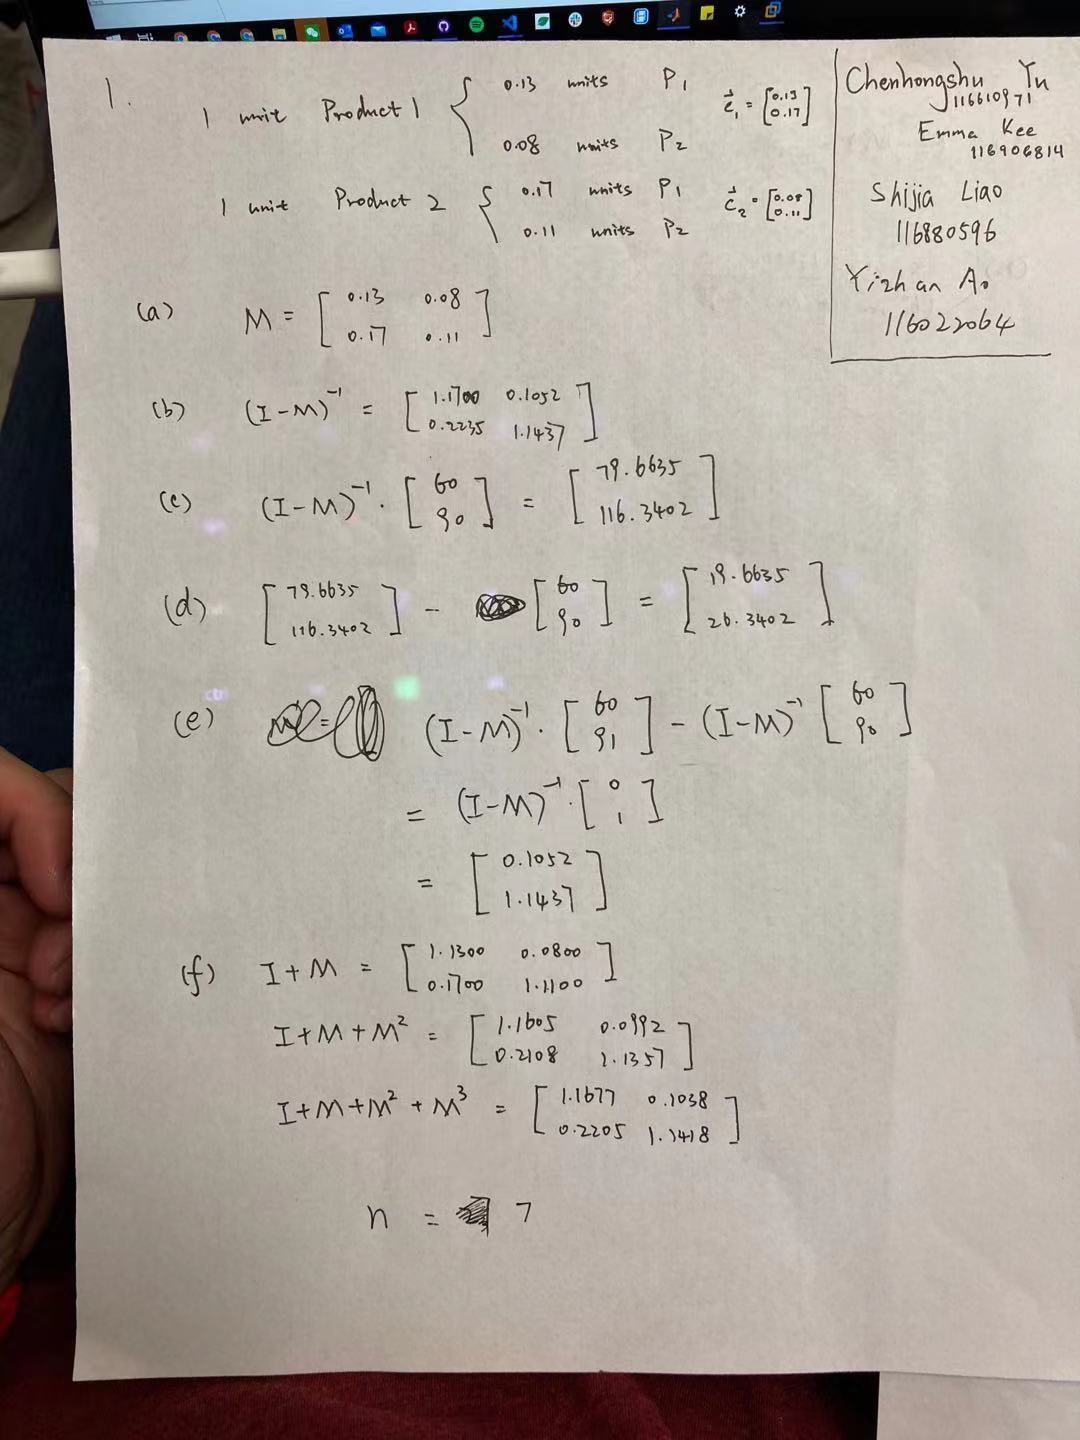 1.
1 unit Product 1 { 0.13 units P1
0.08 units P2
c⃗1 = [0.13
0.17]
1 unit Product 2 { 0.17 units P1
0.11 units P2
c⃗2 = [0.08
0.11]
Chenhongshu Yu
116610971
Emma Kee
116906814
Shijia Liao
116880596
Yizhan Ao
116022064
(a) M = [0.13 0.08
0.17 0.11]
(b) (I-M)⁻¹ = [1.1700 0.1052
0.2235 1.1437]
(c) (I-M)⁻¹ · [60
90] = [79.6635
116.3402]
(d) [79.6635
116.3402] - [60
90] = [19.6635
26.3402]
(e) (I-M)⁻¹ · [60
91] - (I-M)⁻¹ [60
90]
= (I-M)⁻¹ · [0
1]
= [0.1052
1.1437]
(f) I+M = [1.1300 0.0800
0.1700 1.1100]
I+M+M² = [1.1605 0.0992
0.2108 1.1357]
I+M+M²+M³ = [1.1677 0.1038
0.2205 1.1418]
n = 7